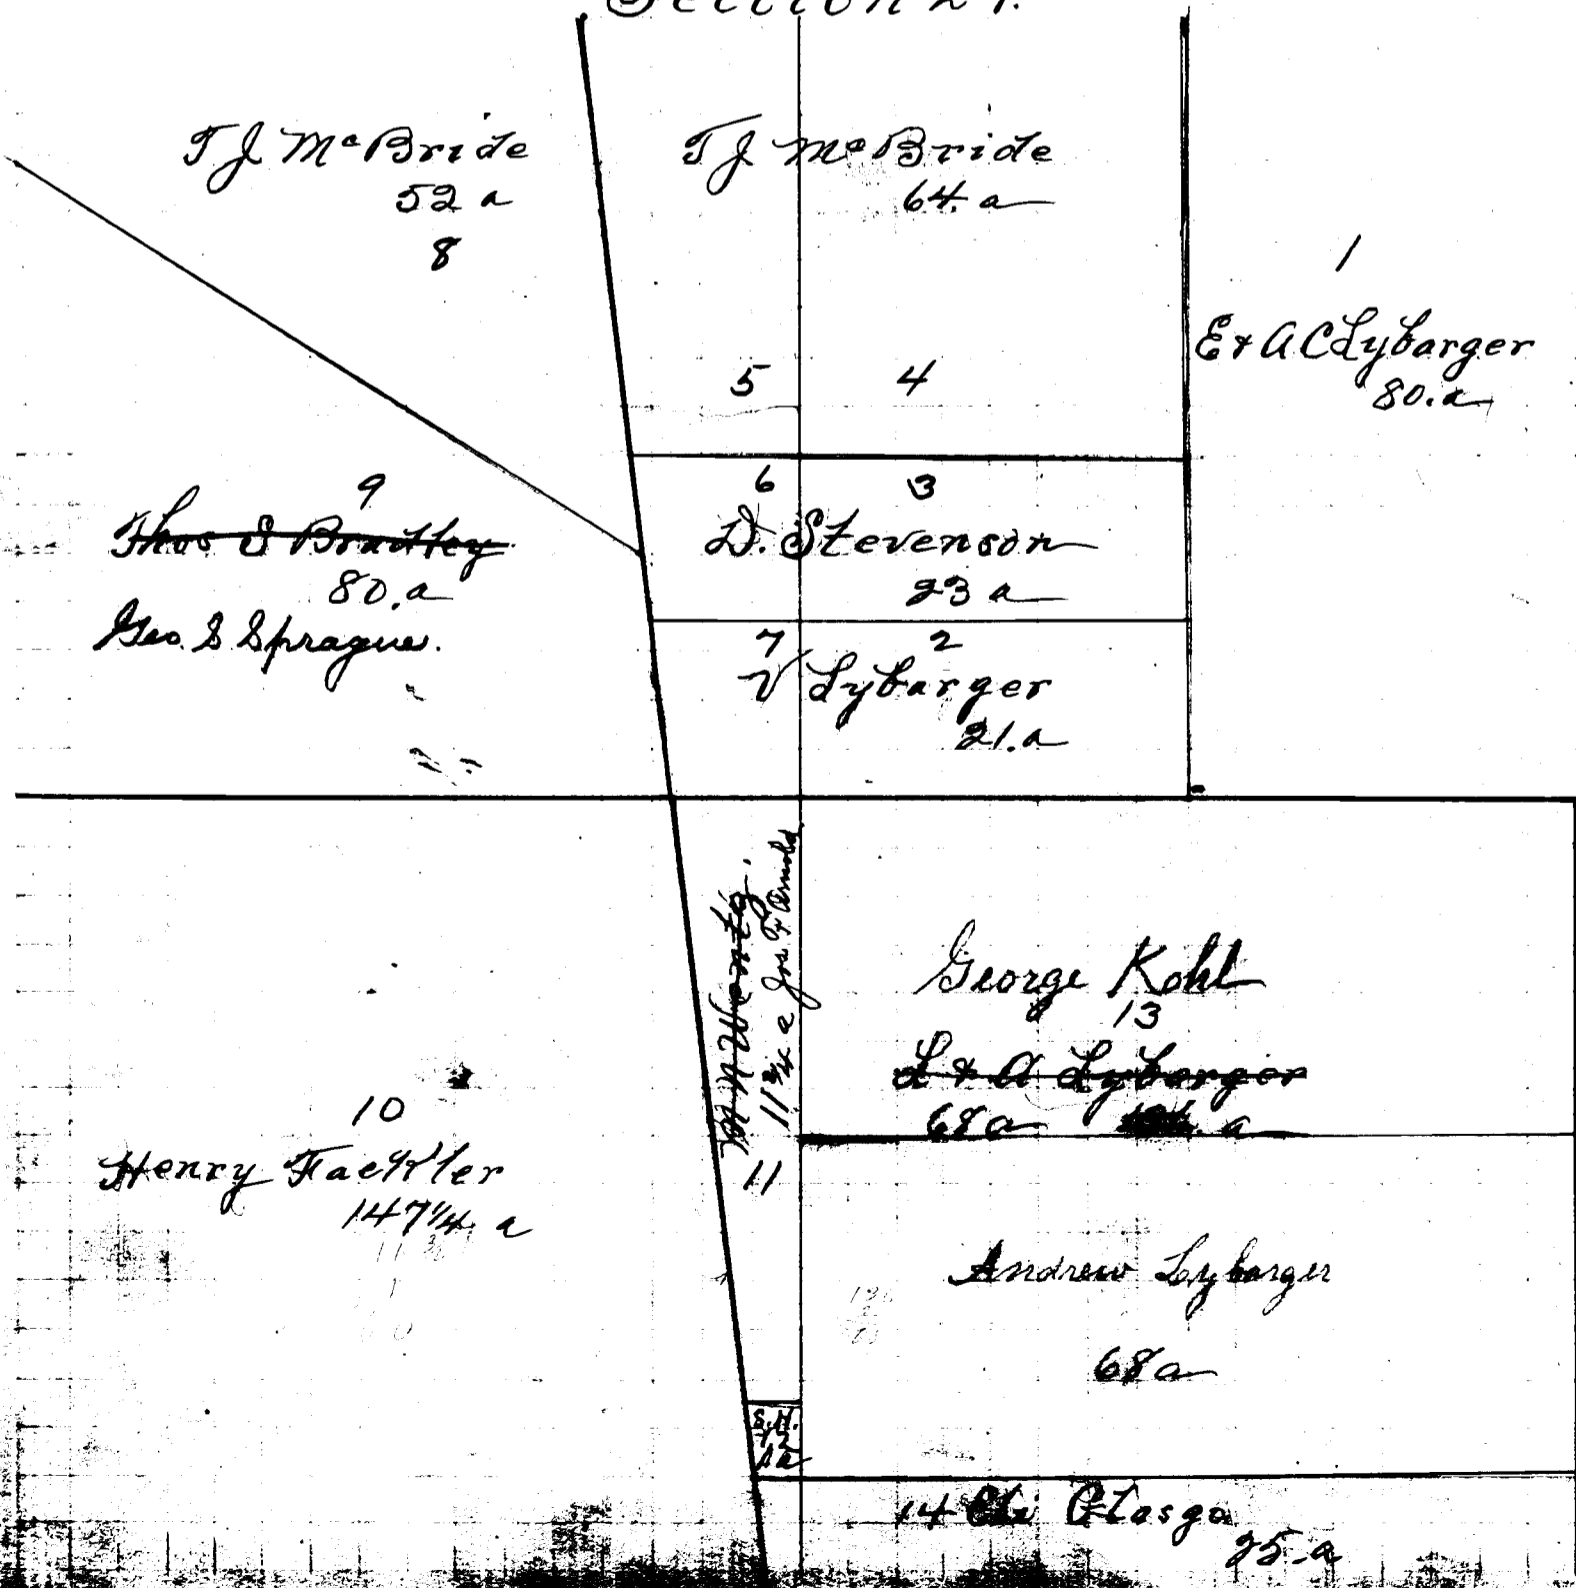 T J McBride
52 a
8
T J McBride
64. a
5 4
1
E & A C Lybarger
80. a
9
Thos S Bradley
80. a
Geo. S Sprague.
6 3
D. Stevenson
23 a
7 2
V Lybarger
21. a
10
Henry Fackler
147 1/4 a
11 3/4 a Jos. F Arnold
11
George Kohl
13
L & A Lybarger
68 a a
Andrew Lybarger
68 a
S.H.
12
14 Eli Glasgo
25. a